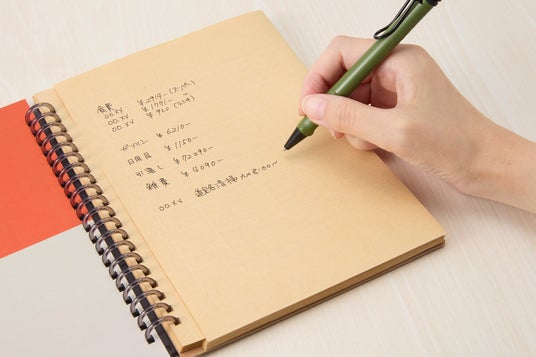 食費 ¥2914-(スーパー)
00.XX ¥1771-
00.XX ¥920(ランチ)
ガソリン ¥6210-
日用品 ¥1150-
引落し ¥72290-
雑費 ¥4090-
00.XX 道路清掃 AM8:00~